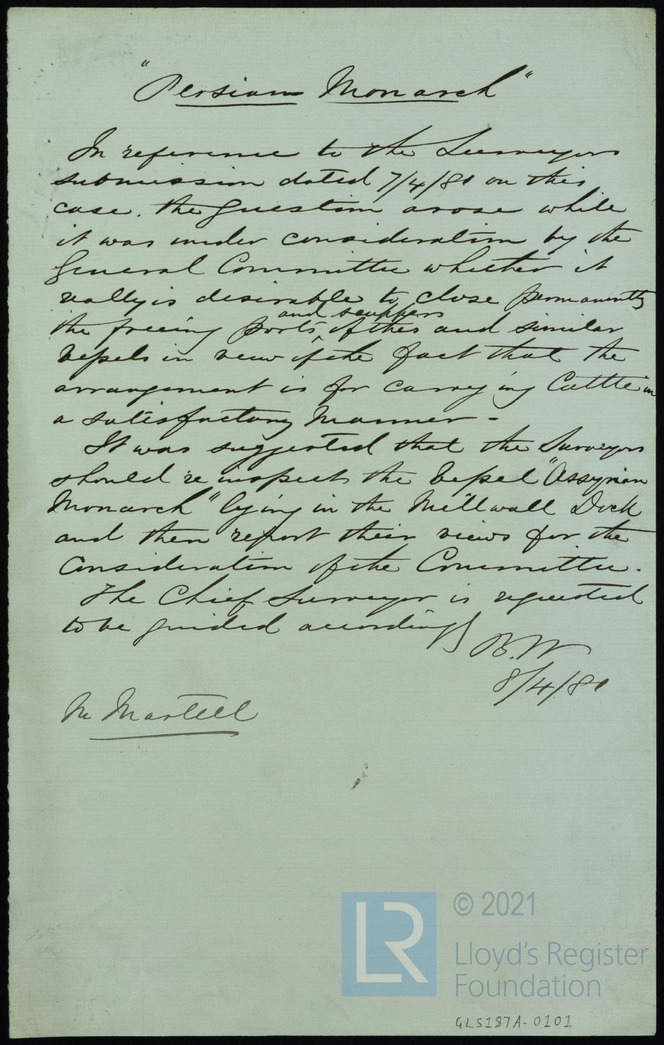 "Persian Monarch"
In reference to the Surveyors
submission dated 7/4/81 on this
case. the question arose while
it was under consideration by the
General Committee whether it
really is desirable to close permanently
and scuppers
the freeing ports ^ of this and similar
Vessels in view of the fact that the
arrangement is for carrying Cattle in
a satisfactory Manner -
It was suggested that the Surveyors
should re inspect the Vessel "Assyrian
Monarch" lying in the Millwall Dock
and then report their views for the
Consideration of the Committee.
The Chief Surveyor is requested
to be guided accordingly
B.W
8/4/81
Mr Martell
LR
© 2021
Lloyd's Register
Foundation
GLS187A-0101